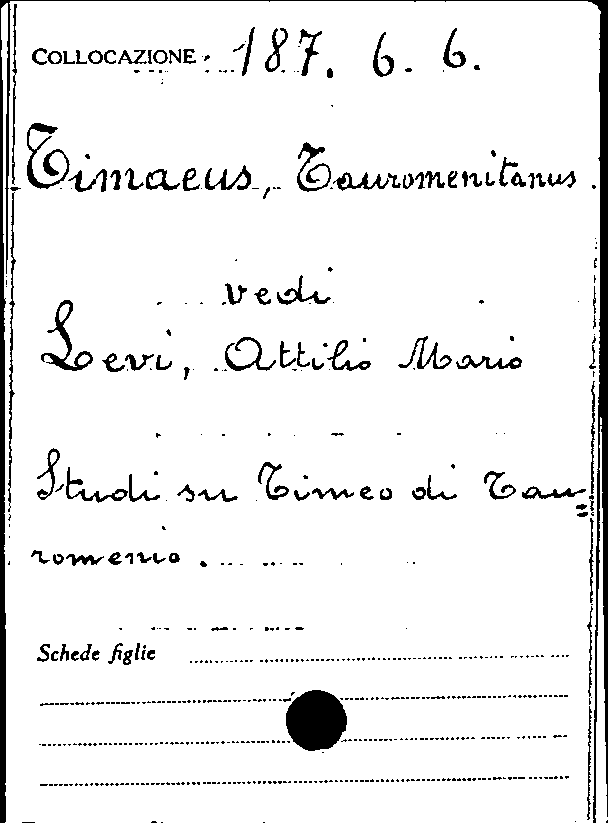 COLLOCAZIONE 187. 6. 6.
Timaeus, Tauromenitanus.
vedi
Levi, Attilio Mario
Studi su Timeo di Tau=
romenio.
Schede figlie